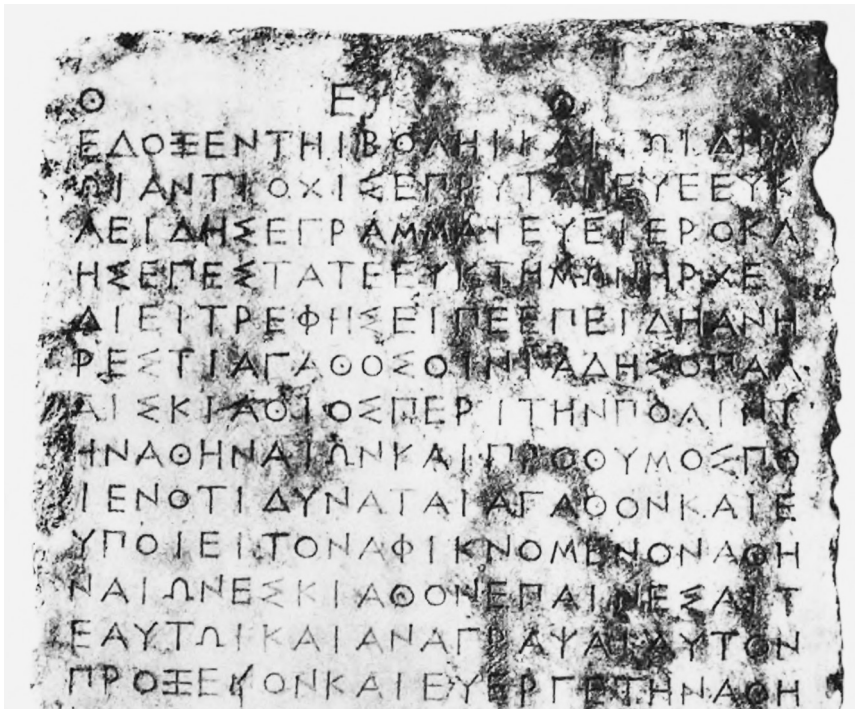 Θ Ε Ο
ΕΔΟΞΕΝΤΗΙΒΟΛΗΙΚΑΙΤΩΙΔΗΜ
ΩΙΑΝΤΙΟΧΙΣΕΠΡΥΤΑΝΕΥΕΕΥΚ
ΛΕΙΔΗΣΕΓΡΑΜΜΑΤΕΥΕΙΕΡΟΚΛ
ΗΣΕΠΕΣΤΑΤΕΕΥΚΤΗΜΩΝΗΡΧΕ
ΔΙΕΙΤΡΕΦΗΣΕΙΠΕΕΠΕΙΔΗΑΝΗ
ΡΕΣΤΙΑΓΑΘΟΣΟΙΝΙΑΔΗΣΟΠΑΛ
ΑΙΣΚΙΑΘΙΟΣΠΕΡΙΤΗΝΠΟΛΙΝΤ
ΗΝΑΘΗΝΑΙΩΝΚΑΙΠΡΟΘΥΜΟΣΠΟ
ΙΕΝΟΤΙΔΥΝΑΤΑΙΑΓΑΘΟΝΚΑΙΕ
ΥΠΟΙΕΙΤΟΝΑΦΙΚΝΟΜΕΝΟΝΑΘΗ
ΝΑΙΩΝΕΣΚΙΑΘΟΝΕΠΑΙΝΕΣΑΙΤ
ΕΑΥΤΩΙΚΑΙΑΝΑΓΡΑΨΑΙΑΥΤΟΝ
ΠΡΟΞΕΝΟΝΚΑΙΕΥΕΡΓΕΤΗΝΑΘΗ